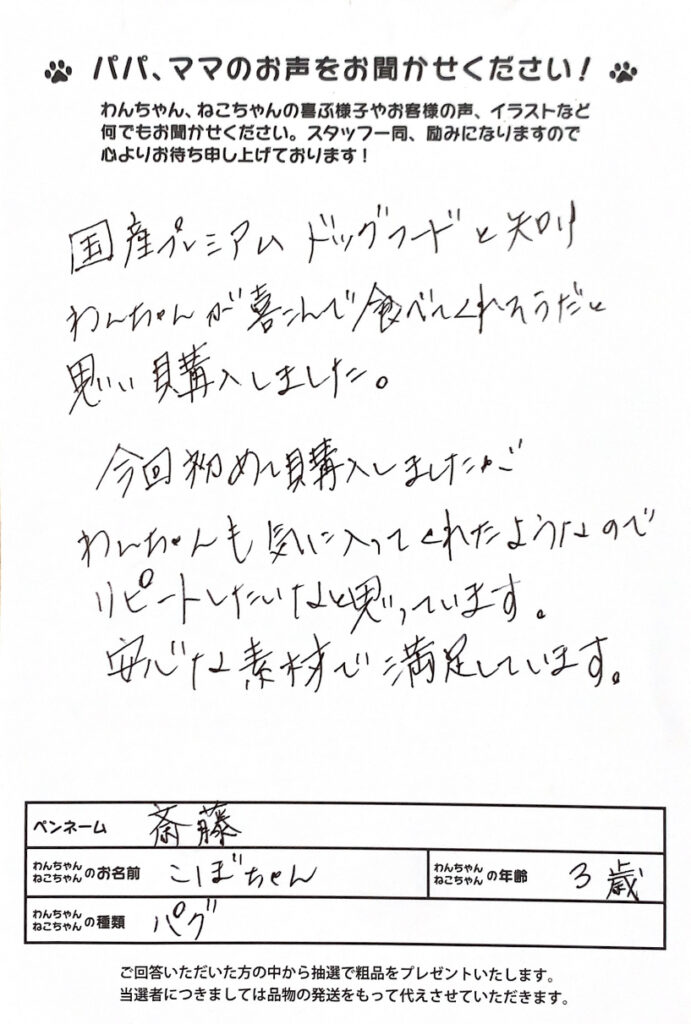 パパ、ママのお声をお聞かせください！
わんちゃん、ねこちゃんの喜ぶ様子やお客様の声、イラストなど
何でもお聞かせください。スタッフ一同、励みになりますので
心よりお待ち申し上げております！
国産プレミアムドッグフードと知り
わんちゃんが喜こんで食べてくれそうだと
思い購入しました。
今回初めて購入しましたが
わんちゃんも気に入ってくれたようなので
リピートしたいなと思っています。
安心な素材で満足しています。
ペンネーム 斎藤
わんちゃん ねこちゃん のお名前 こぼちゃん わんちゃん ねこちゃん の年齢 3歳
わんちゃん ねこちゃん の種類 パグ
ご回答いただいた方の中から抽選で粗品をプレゼントいたします。
当選者につきましては品物の発送をもって代えさせていただきます。